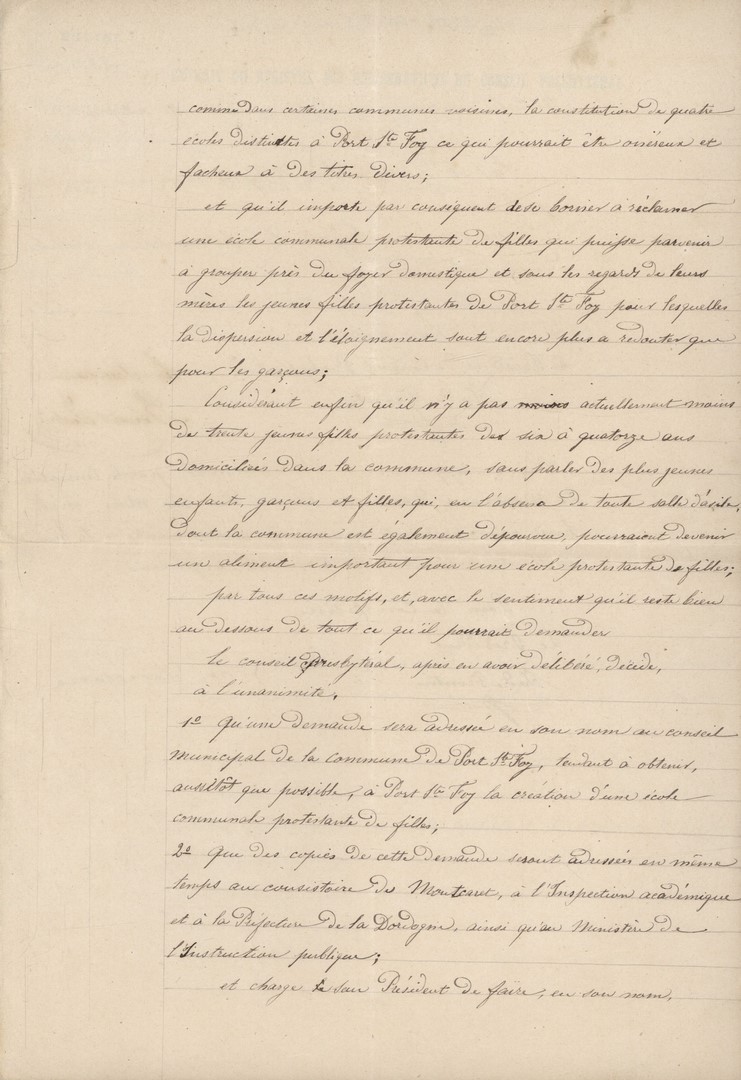 comme dans certaines communes voisines, la constitution de quatre
écoles distinctes à Port Ste Foy ce qui pourrait être onéreux et
facheux à des titres divers;
et qu'il importe par conséquent de se borner à réclamer
une école communale protestante de filles qui puisse parvenir
à grouper près du foyer domestique et sous les regards de leurs
mères les jeunes filles protestantes de Port Ste Foy pour lesquelles
la dispersion et l'éloignement sont encore plus a redouter que
pour les garçons;
Considérant enfin qu'il n'y a pas moins actuellement moins
de trente jeunes filles protestantes de six à quatorze ans
domiciliées dans la commune, sans parler des plus jeunes
enfants, garçons et filles, qui, en l'absence de toute salle d'asile,
dont la commune est également dépourvue, pourraient devenir
un aliment important pour une école protestante de filles;
par tous ces motifs, et, avec le sentiment qu'il reste bien
au dessous de tout ce qu'il pourrait demander
le conseil Presbytéral, après en avoir délibéré, décide,
à l'unanimité,
1o Qu'une demande sera adressée en son nom au conseil
municipal de la commune de Port Ste Foy, tendant à obtenir,
aussitôt que possible, à Port Ste Foy la création d'une école
communale protestante de filles;
2o Que des copies de cette demande seront adressées en même
temps au consistoire de Montcaret, à l'Inspection académique
et à la Préfecture de la Dordogne, ainsi qu'au Ministère de
l'Instruction publique;
et charge son Président de faire, en son nom,